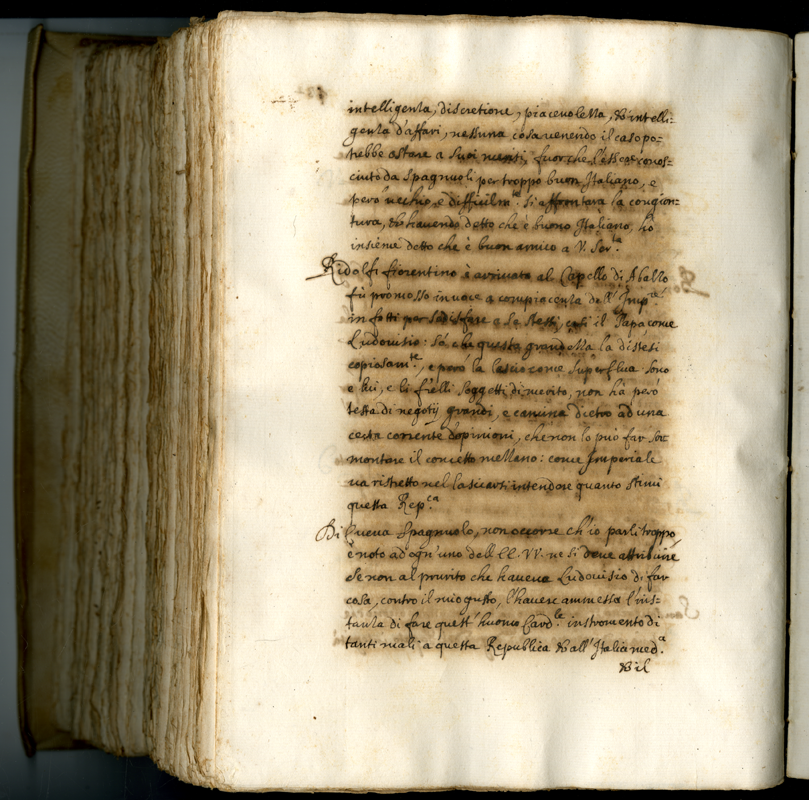 intelligenza, discretione, piacevolezza, & intelli-
genza d'affari, nessuna cosa venendo il caso po-
trebbe ostare a suoi meriti, fuorche l'esser conos-
ciuto da Spagnuoli per troppo buon Italiano, e
però vechio, e difficilm.te si affrontera la congion-
tura, & havendo detto che è buono Italiano, ho
insieme detto che è buon amico a V. Ser.tà
Ridolfi fiorentino è arrivato al Capello di
fù promosso in voce a compiacenza dell'Imp.re
in fatti per sodisfare a se stessi, e il Papa come
Ludovisio: sà che questa grandezza la distesi
copiosam.te, e però la lascio come superflua. sono
e lui, e li f'relli soggetti di merito, non hà però
testa di negotij grandi, e camina dietro ad una
certa corrente d'opinioni, che non lo può far sor
montare il concetto mezzano: come Imperiale
va ristretto nel lasciarsi intendere quanto stimi
questa Rep.ca
Di Cueva Spagnuolo, non occorre ch'io parli troppo
è noto ad ogn'uno dell'EE. VV. ne si deve attribuire
se non al prurito che haveva Ludovisio di far
cosa, contro il mio gusto, l'havere ammessa l'ins-
tanza di fare quest'huomo Card.le instromento di
tanti mali a questa Republica & all'Italia med.a
& il